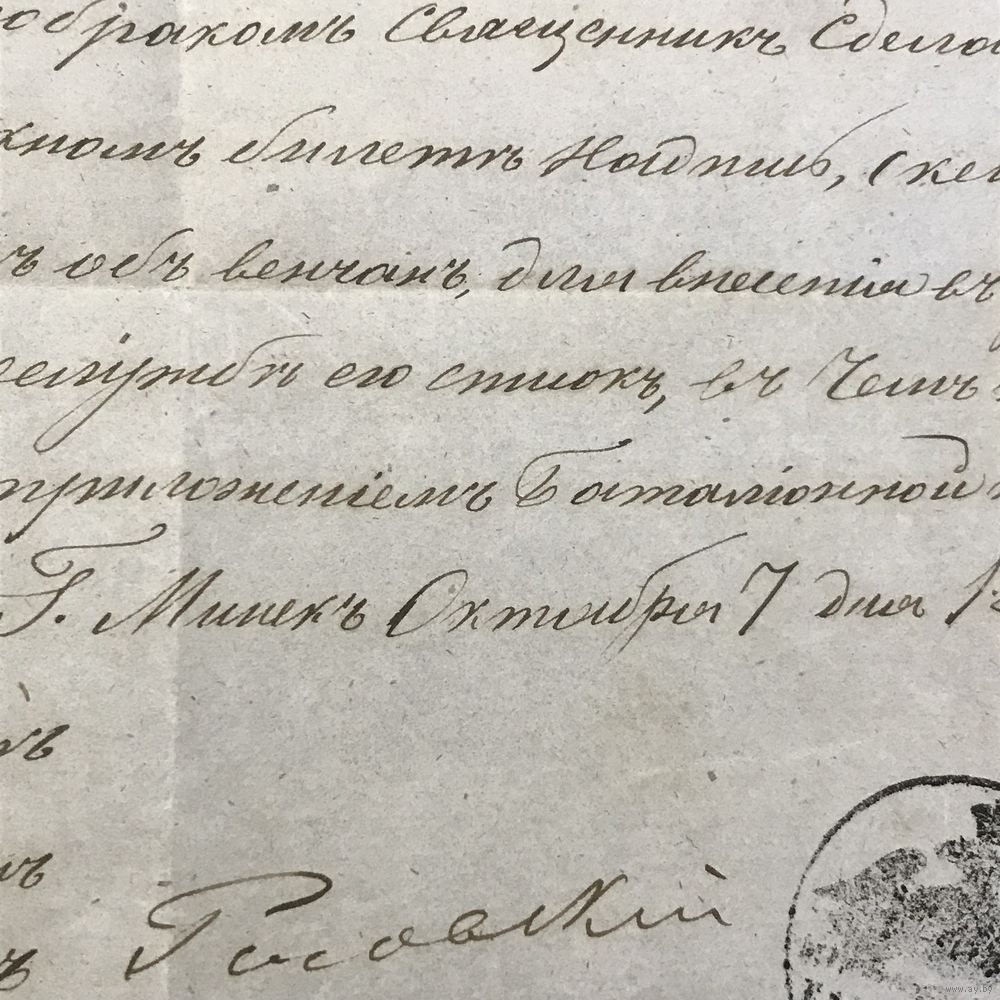 обракомъ священникъ Сдела
жномъ билетѣ Надпись, (кей
ъ объ венчанъ, для внесенія въ
еслужбѣ его списокъ, въ Чемъ
приложеніемъ Баталіонной
Г. Минскъ Октября 7 дня 1
Госовскій
www.ay.by